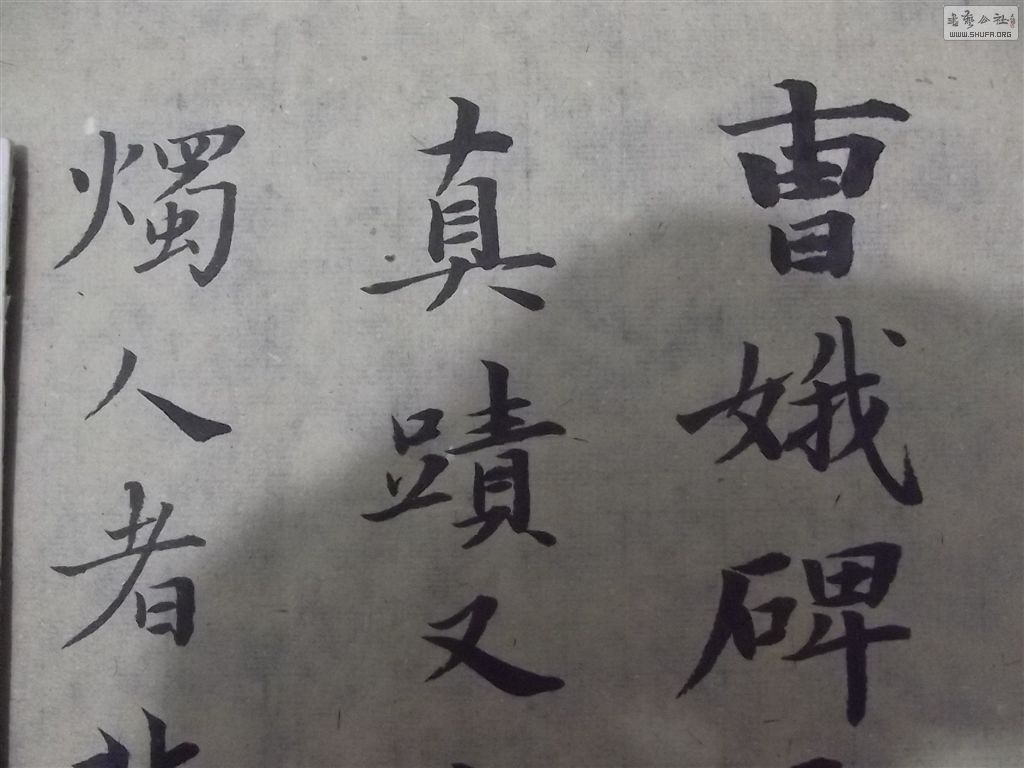 曺娥碑
真蹟又
燭人者
書藝公社
WWW.SHUFA.ORG